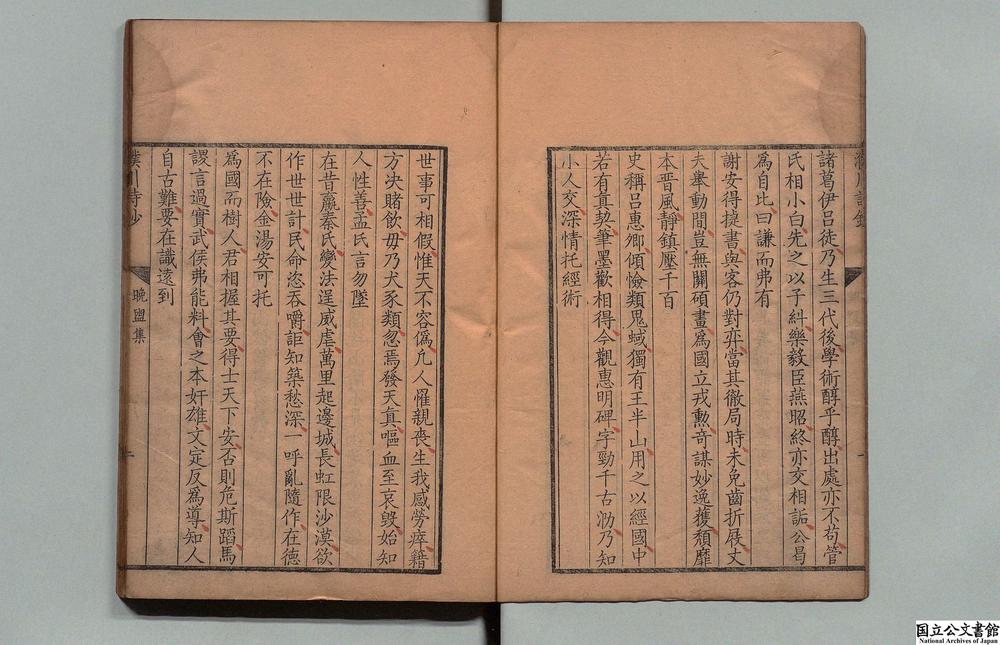 諸葛伊呂徒乃生三代後學術醇乎醇出處亦不苟管
氏相小白先之以子糾樂毅臣燕昭終亦交相詬公曷
爲自比曰謙而弗有
謝安得捷書與客仍對弈當其徹局時未免齒折屐丈
夫舉動間豈無關碩畫爲國立戎勲奇謀妙逸獲頹靡
本晉風靜鎮壓千百
史稱吕惠卿傾憸類鬼蜮獨有王半山用之以經國中
若有真契筆墨歡相得今觀惠明碑字勁千古泐乃知
小人交深情托經術
世事可相假惟天不容僞凢人懼親喪生我感勞瘁籍
方决賭飲毋乃犬豕類忽焉發天真嘔血至哀毀始知
人性善孟氏言勿墜
在昔嬴秦氏變法逞威虐萬里起邊城長虹限沙漠欲
作世世計民命恣吞嚼詎知築愁深一呼亂隨作在德
不在險金湯安可托
爲國而樹人君相握其要得士天下安否則危斯蹈馬
謖言過實武侯弗能料會之本奸雄文定反爲導知人
自古難要在識遠到
川詩鈔
晩盥集
国立公文書館
National Archives of Japan